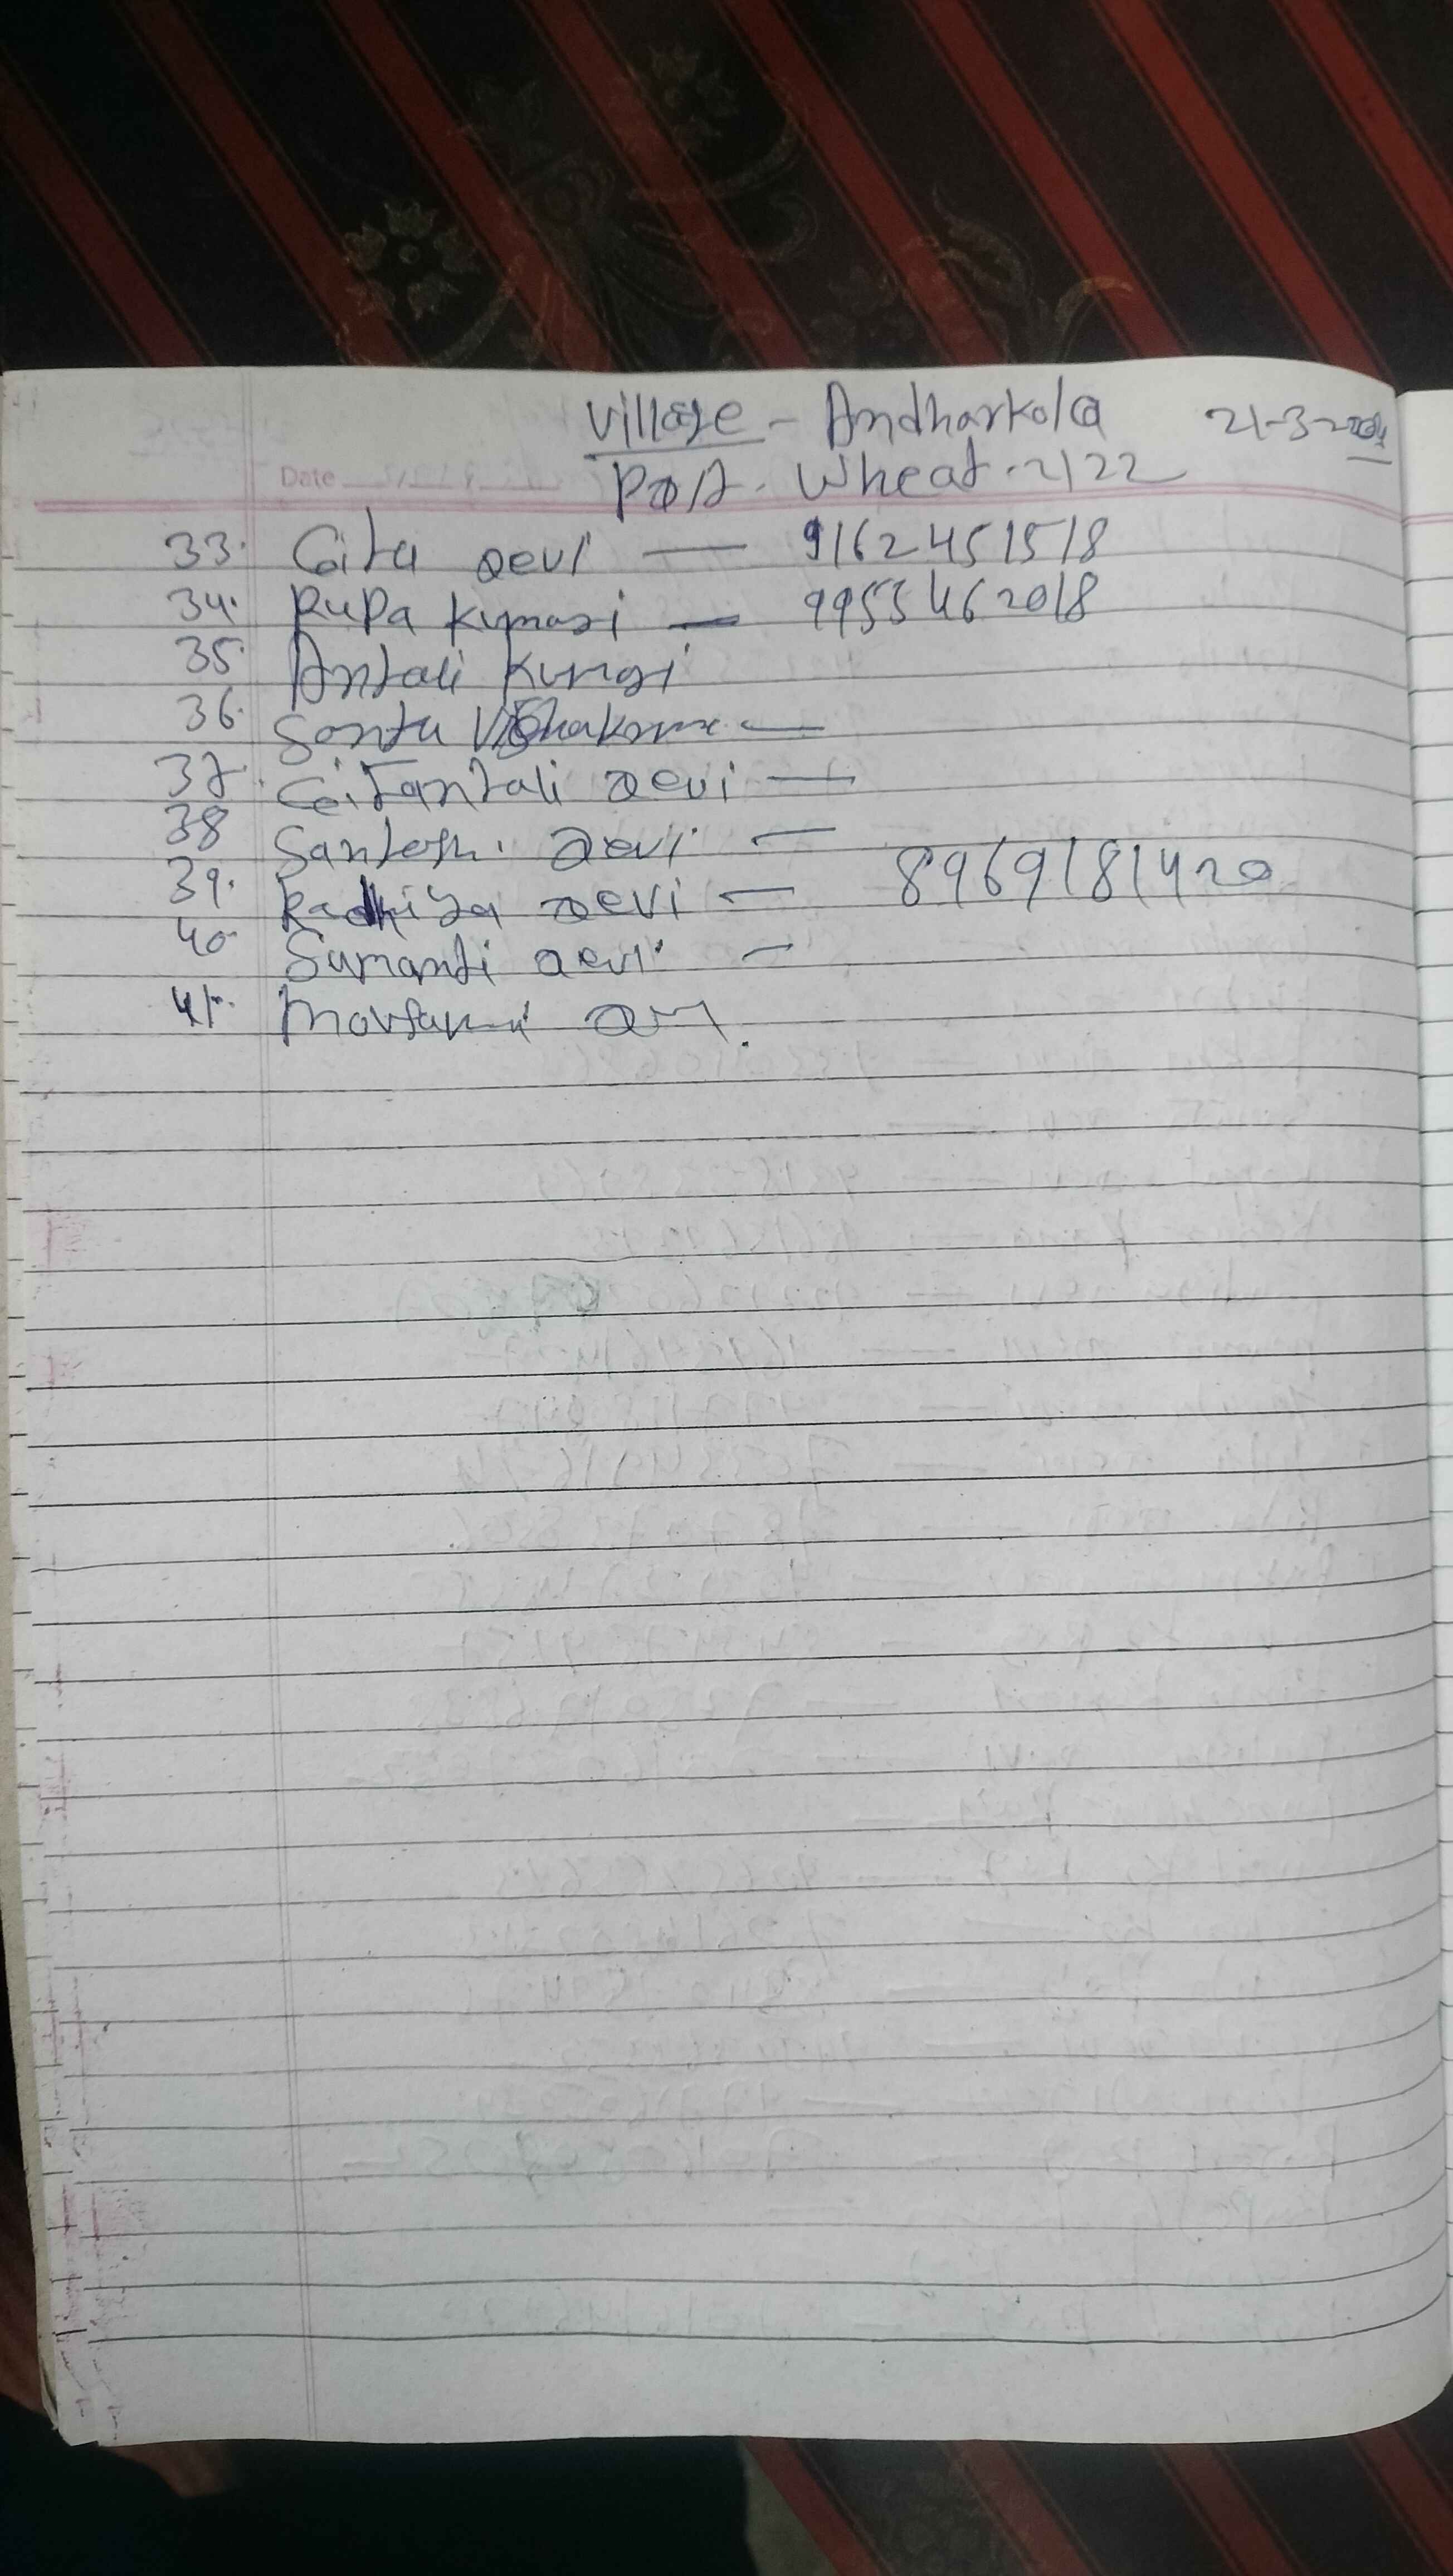 Village - Andharkola 21-3-2024
Date
Post. Wheat. 2122
33. Gita Devi — 9162451518
34. Rupa Kumari — 9953462018
35. Anjali Kumari
36. Sontu Vishakarma —
37. Gitanjali Devi —
38 Santoshi Devi —
39. Radhiya Devi — 8969181420
40. Sumanti Devi —
41.